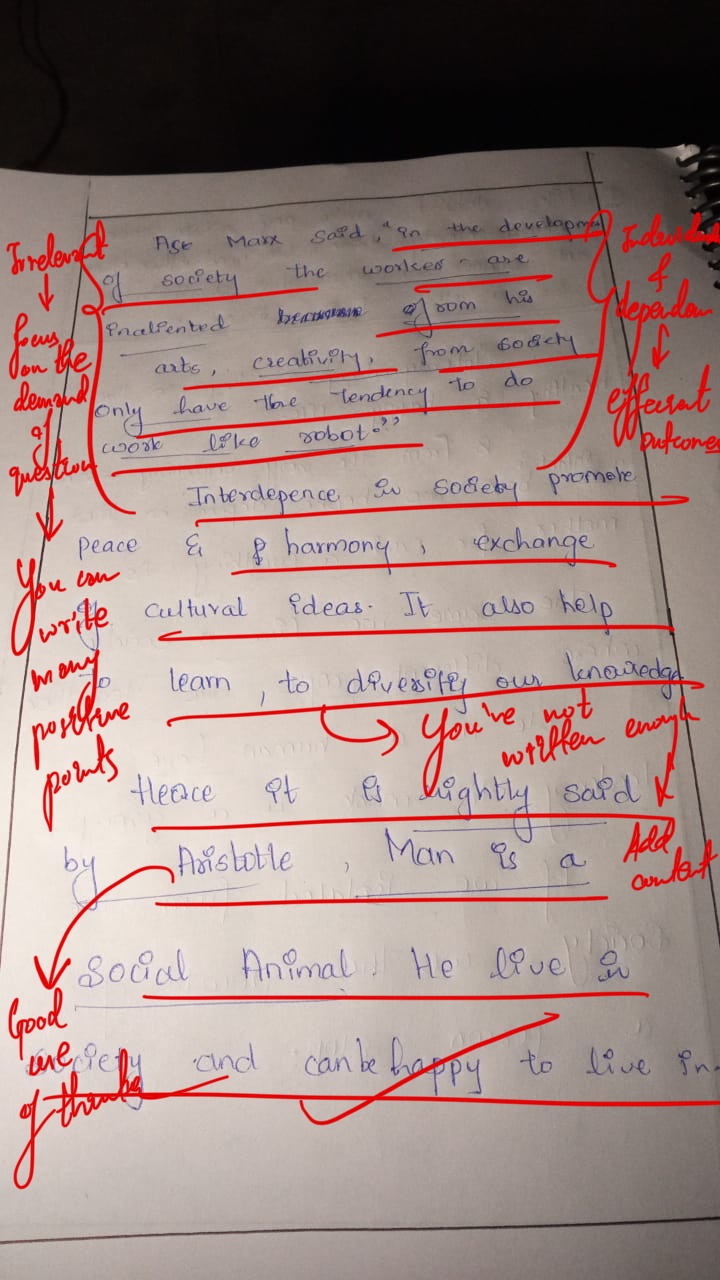 Age Marx said, "in the developme
of society the workes are
inaliented from his
arts, creativity, from society
only have the tendency to do
work like robot."
Interdepence in society promote
peace & harmony, exchange
cultural ideas. It also help
to learn, to diversify our knowledge
Hence it is rightly said
by Aristotle, Man is a
Social Animal. He live in
society and can be happy to live in
Irrelevant
↓
focus
on the
demand
of
question
↓
You can
write
many
positive
points
&
↓
outcomes
You've not
written enough
Add
content
Good
use
of